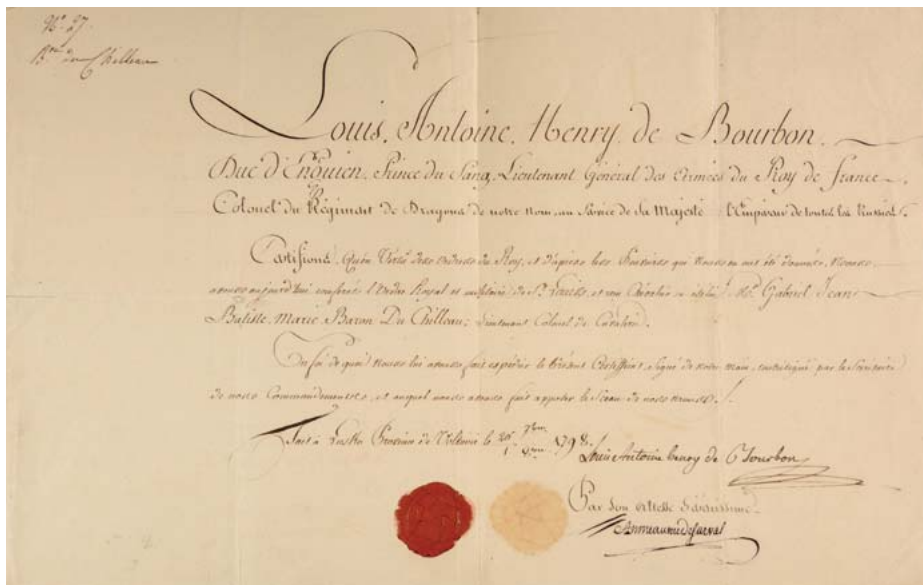 N.º 27.
B.on du Chilleau
Louis, Antoine, Henry, de Bourbon,
Duc d'Enguien, Prince du Sang, Lieutenant Général des Armées du Roy de france
Colonel du Régiment de Dragons de notre nom, au Service de Sa Majesté l'Empereur de toutes les Russies.
Certifions, Qu'en Vertu des ordres du Roy, et d'après les qui nous en ont été donnés, Nous
avons aujourd'hui conféré l'Ordre Royal et militaire de S.t Louis, et Chevalier M.r Gabriel Jean
Batiste, Marie, Baron Du Chilleau; Lieutenant Colonel de Cavalerie.
En foi de quoi nous lui avons fait expédier le Présent Certificat, Signé de notre main, par le Secrétaire
de nos Commandements, et auquel nous avons fait apposer le Sceau de nos armes.
fait à Province de le 1798.
Louis Antoine henry de Bourbon
Par Son Altesse Sérénissime